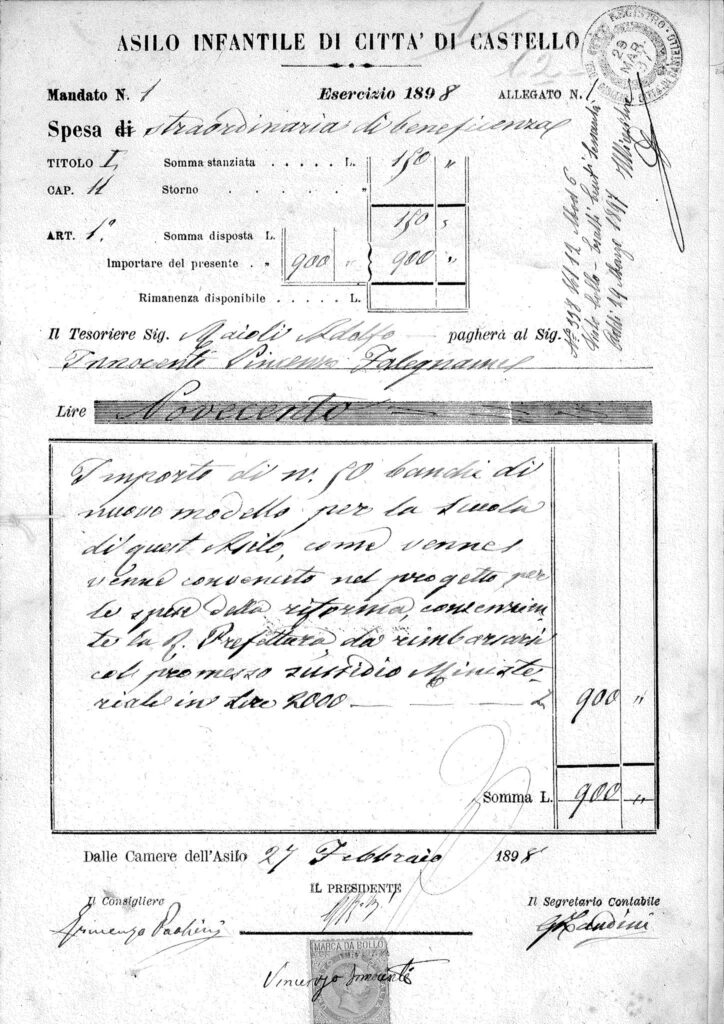 ASILO INFANTILE DI CITTA' DI CASTELLO
REGISTRO
29
MAR.
97
Mandato N. 1 Esercizio 1898 ALLEGATO N. 1
Spesa di straordinaria di beneficenza
TITOLO I Somma stanziata . . . . . L. 150 "
CAP. II Storno . . . . . "
150 "
ART. 1° Somma disposta L.
Importare del presente . " 900 " 900 "
Rimanenza disponibile . . . . . L.
Il Tesoriere Sig. Maioli Adolfo pagherà al Sig.
Innocenti Vincenzo Falegname
Lire Novecento
Importo di n. 50 banchi di
nuovo modello per la scuola
di quest Asilo, come venne
venne convenuto nel progetto per
le spese della riforma, consenzien-
te la R. Prefettura, da rimborsarsi
col promesso sussidio Ministe-
riale in Lire 2000 — — — — L 900 "
Somma L. 900 "
Dalle Camere dell'Asilo 27 Febbraio 1898
IL PRESIDENTE
Il Consigliere Il Segretario Contabile
MARCA DA BOLLO
Vincenzo Innocenti
N° 398 Vol 12 Mod 6
29 Marzo 1897